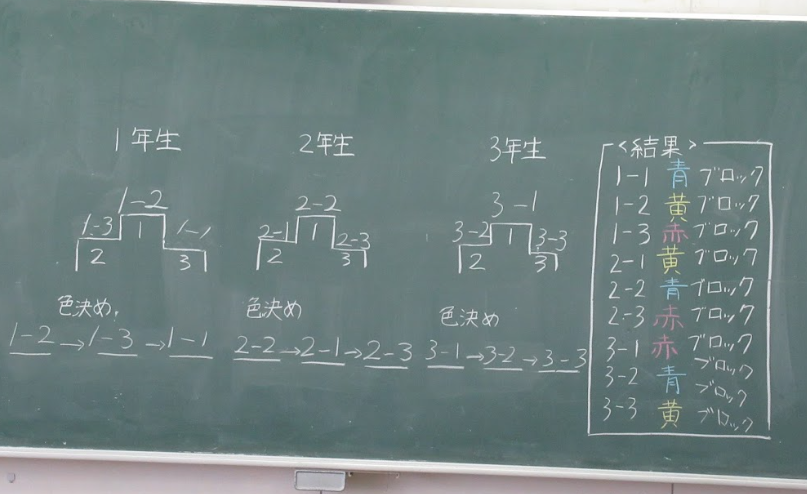 1年生
1-2
1-3 1 1-1
2 3
色決め.
1-2→1-3→1-1
2年生
2-2
2-1 1 2-3
2 3
色決め
2-2→2-1→2-3
3年生
3-1
3-2 1 3-3
2 3
色決め
3-1→3-2→3-3
<結果>
1-1 青 ブロック
1-2 黄 ブロック
1-3 赤 ブロック
2-1 黄 ブロック
2-2 青 ブロック
2-3 赤 ブロック
3-1 赤 ブロック
3-2 青 ブロック
3-3 黄 ブロック